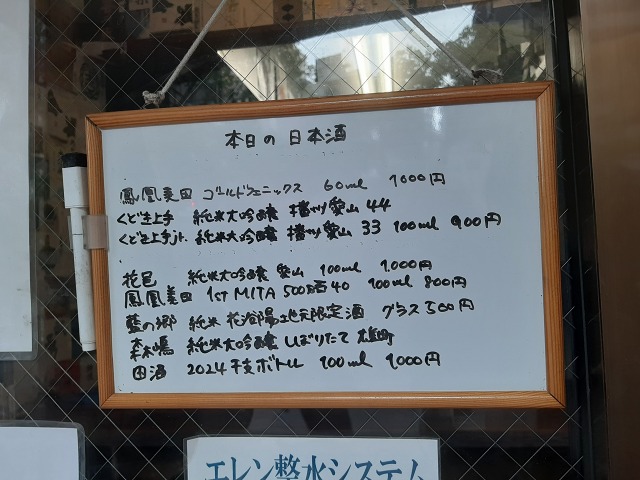 本日の日本酒
鳳凰美田 ゴールドフェニックス 60ml 1000円
くどき上手 純米大吟醸 播州愛山 44
くどき上手Jr. 純米大吟醸 播州愛山 33 100ml 900円
花邑 純米大吟醸 愛山 100ml 1000円
鳳凰美田 1st MITA 500万石40 100ml 800円
藍の郷 純米 花 陽地元限定酒 グラス 500円
純米大吟醸 しぼりたて 雄町
田酒 2024干支ボトル 100ml 1000円
エレン整水システム